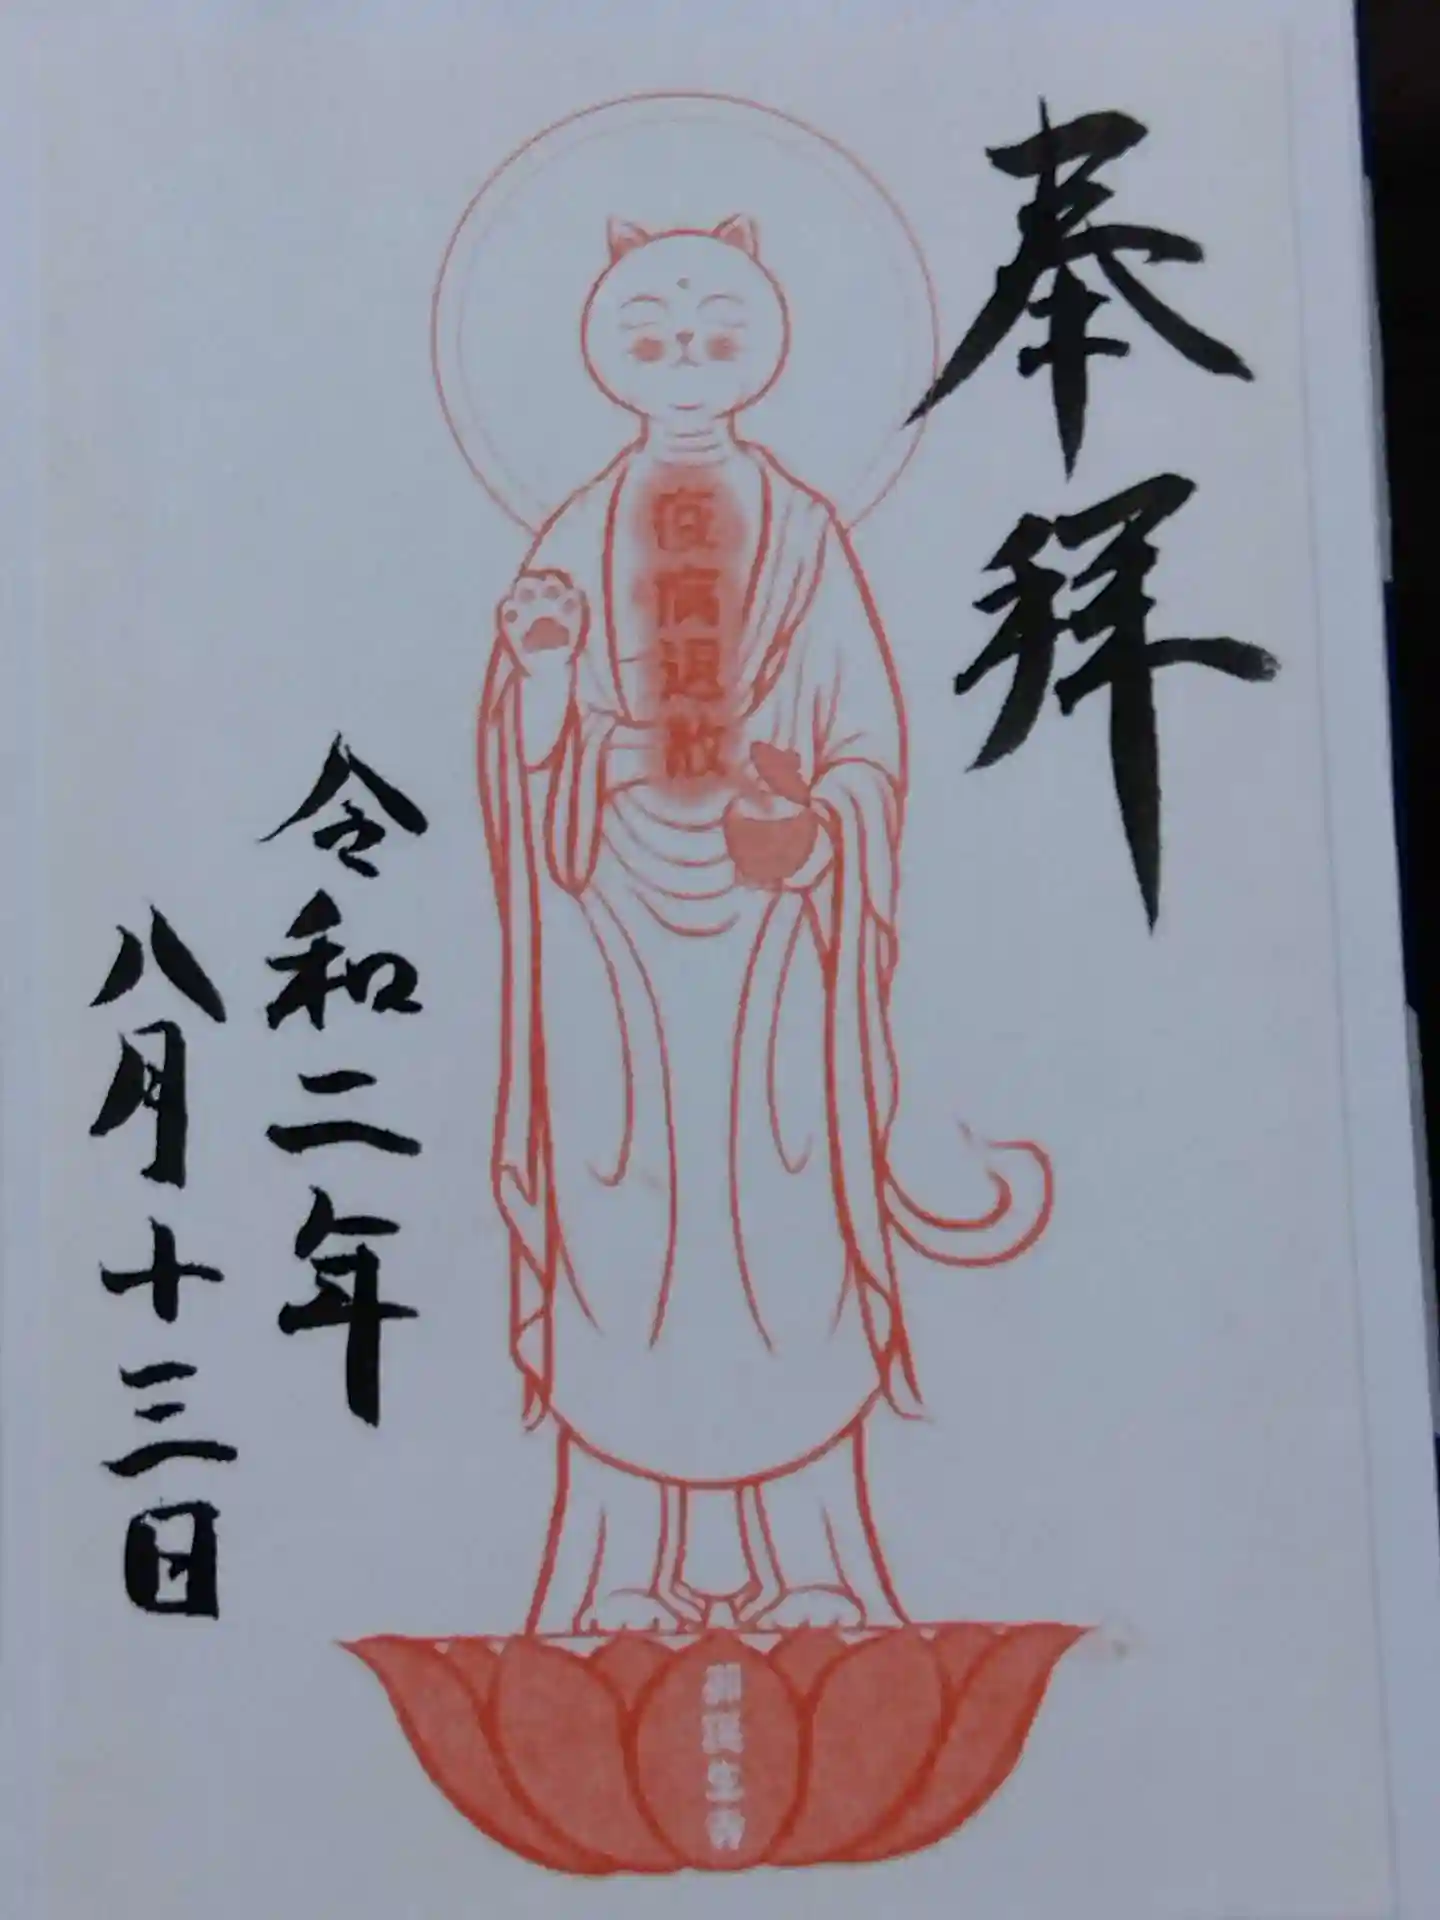 奉拝
疫病退散
令和二年
八月十三日